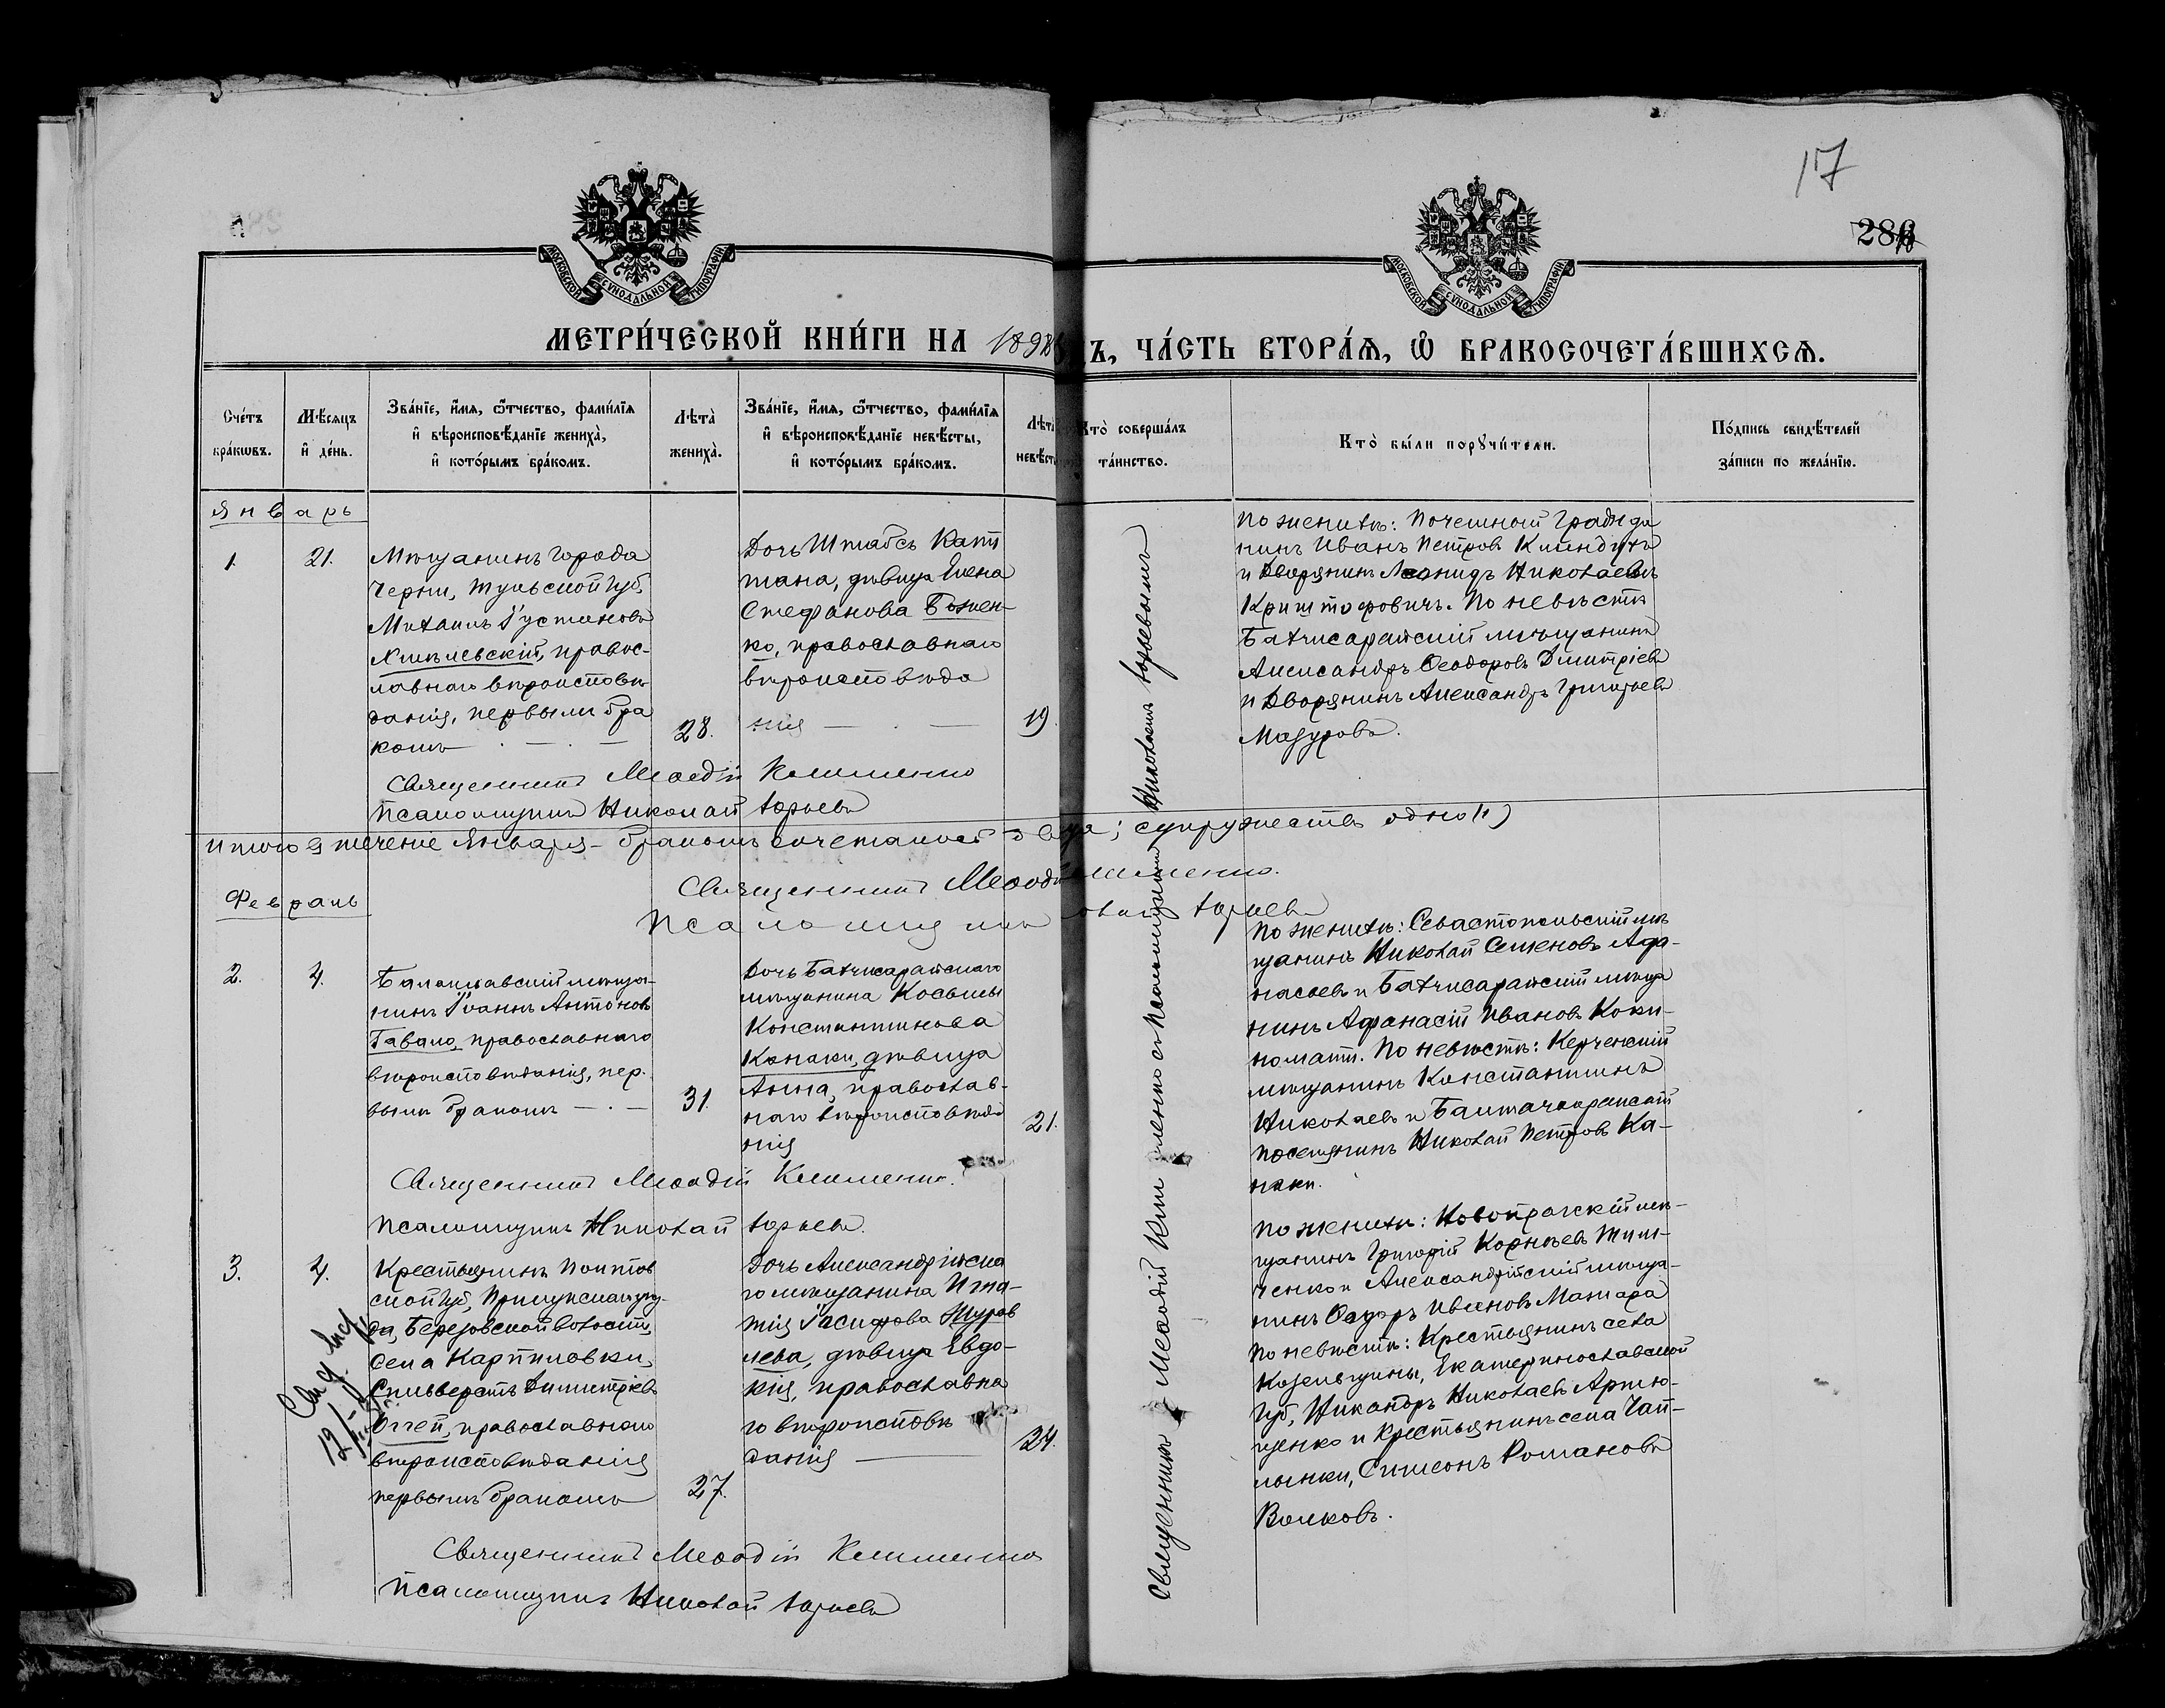 17
286
МОСКОВСКОЙ СѴНОДАЛЬНОЙ ТИПОГРАФІИ
МОСКОВСКОЙ СѴНОДАЛЬНОЙ ТИПОГРАФІИ
МЕТРИ́ЧЕСКОЙ КНИ́ГИ НА 1898
Ъ, ЧА́СТЬ ВТОРА́Я, Ѡ БРАКОСОЧЕТА́ВШИХСѦ.
Сче́тъ бра́кѡвъ.
Мѣ́сяцъ и҆ де́нь.
Зва́нїе, и҆́мя, ѻ҆́тчество, фами́лїя и҆ вѣроисповѣ́данїе жениха̀, и҆ кото́рымъ бра́комъ.
Лѣта̀ жениха̀.
Зва́нїе, и҆́мя, ѻ҆́тчество, фами́лїя и҆ вѣроисповѣ́данїе невѣ́сты, и҆ кото́рымъ бра́комъ.
Лѣта̀ невѣ́сты
Кто̀ соверша́лъ та́инство.
Кто̀ бы́ли порꙋчи́тели.
По́дпись свидѣ́телей за́писи по жела́нїю.
Январь
1.
21.
Мѣщанинъ города
Черни, Тульской губ,
Михаилъ Густиновъ
Хмѣлевскій, правос-
лавнаго вѣроисповѣ
данія, первымъ бра
комъ
28.
Дочь Штабсъ Капи
тана, дѣвица Елена
Стефанова Божен-
ко, православнаго
вѣроисповѣда
нія
19
По женихѣ: Почетный Гражда
нинъ Иванъ Петровъ
и Дворянинъ Леонидъ Николаевъ
Криштофовичъ. По невѣстѣ
Бахчисарайскій мѣщанинъ
Александръ Ѳеодоровъ Димитріевъ
и Дворянинъ Александръ Григорьевъ
Мазуровъ.
Священникъ Меѳодій Клименко
Псаломщикъ Николай Юрьевъ
Итого въ теченіе Января бракомъ сочеталось двое; супружествъ одно (1)
Священникъ Меѳодій Клименко.
Псаломщикъ Николай Юрьевъ
Февраль
2.
4.
Балаклавскій мѣща-
нинъ Іоаннъ Антоновъ
Гавало, православнаго
вѣроисповѣданія, пер-
вымъ бракомъ
31.
Дочь Бахчисарайскаго
мѣщанина Космы
Константинова
Канаки, дѣвица
Анна, православ-
наго вѣроисповѣда
нія
21.
По женихѣ: Севастопольскій мѣ
щанинъ Николай Семеновъ Афа-
насьевъ и Бахчисарайскій мѣща
нинъ Афанасій Ивановъ Коки-
номати. По невѣстѣ: Керченскій
мѣщанинъ Константинъ
Николаевъ и
поселянинъ Николай Петровъ Ка-
наки.
Священникъ Меѳодій Клименко.
Псаломщикъ Николай Юрьевъ.
3.
4.
Крестьянинъ Полтав
ской губ, Прилукскаго уѣз
да, Березовской волости,
села Карпиловки,
Сильверстъ Димитріевъ
Оггей, православнаго
вѣроисповѣданія
первымъ бракомъ
27.
Дочь Александрійска
го мѣщанина Игна-
тія Іосифова Журав
лева, дѣвица Евдо-
кія, православна
го вѣроисповѣ
данія
24.
По женихѣ: Новопражскій мѣ-
щанинъ Григорій Корнѣевъ Тим-
ченко и Александрійскій мѣща-
нинъ Ѳедоръ Ивановъ
По невѣстѣ: Крестьянинъ села
Козельщины, Екатеринославской
губ, Никаноръ Николаевъ Артю-
щенко и Крестьянинъ села Чап-
лынки, Симеонъ Романовъ
Волковъ.
Священникъ Меѳодій Клименко
Псаломщикъ Николай Юрьевъ
Священникъ Меѳодій Клименко съ Псаломщикомъ Николаемъ Юрьевымъ